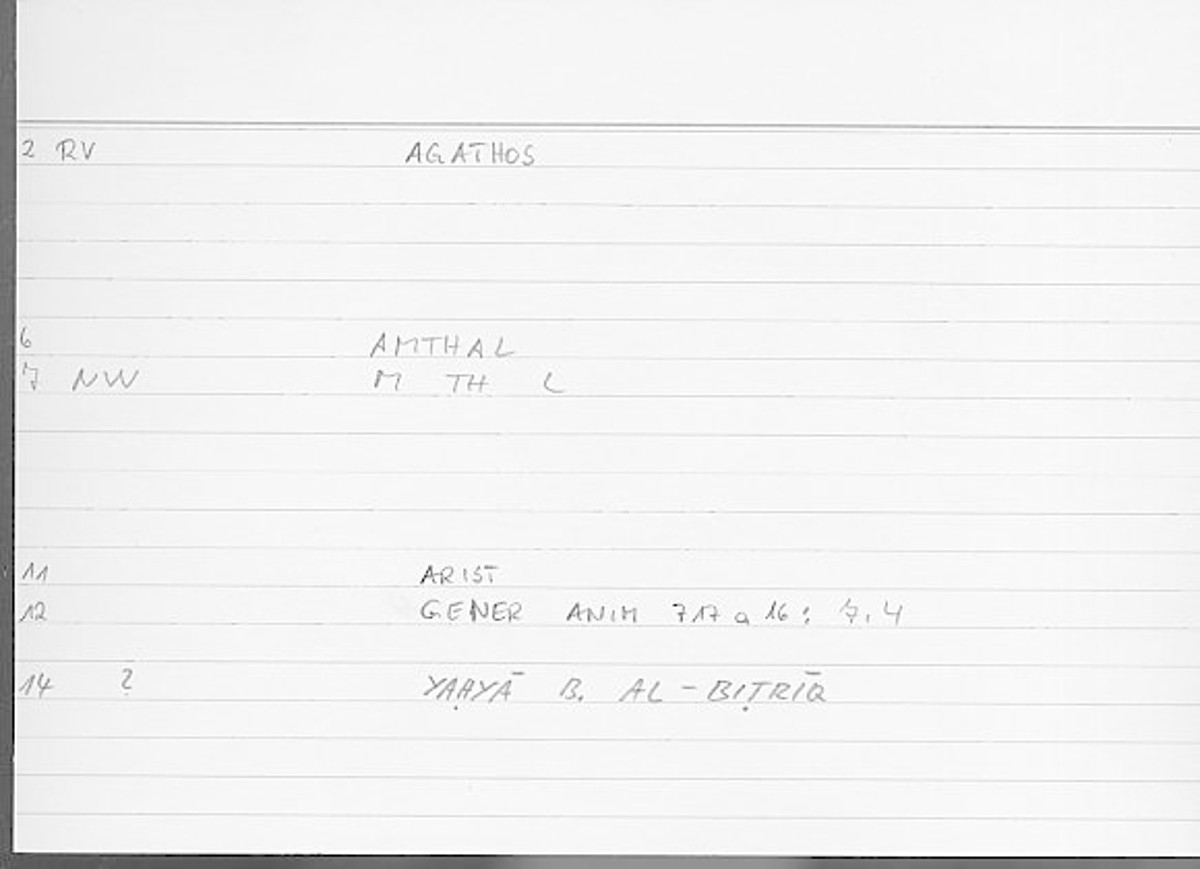 2 RV AGATHOS
6 AMTHAL
7 NW M TH L
11 ARIST
12 GENER ANIM 717 a 16 : 7.4
14 ? YAḤYĀ B. AL-BIṬRĪQ